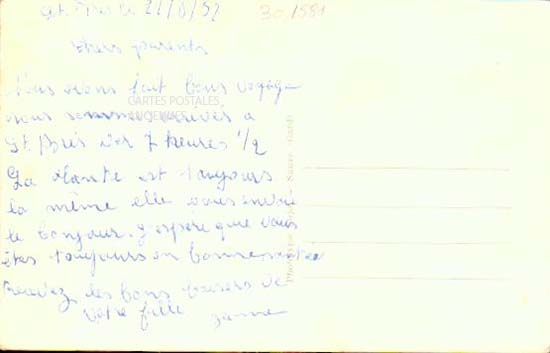 St Bris le 21/8/52
30.1581
chers parents
Nous avons fait bons voyage
nous sommes arrivés a
CARTES POSTALES
ANCIENNES
St Bris vers 7 heures 1/2
La tante est toujours
la même elle vous envoie
le bonjour. J espère que vous
êtes toujours en bonne santée
recevez les bons baisers de
votre fille